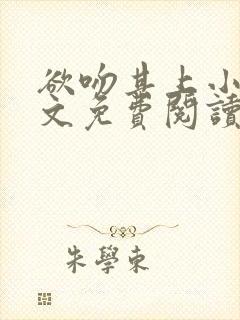 欲吻其上小
文免費閱讀
朱學東